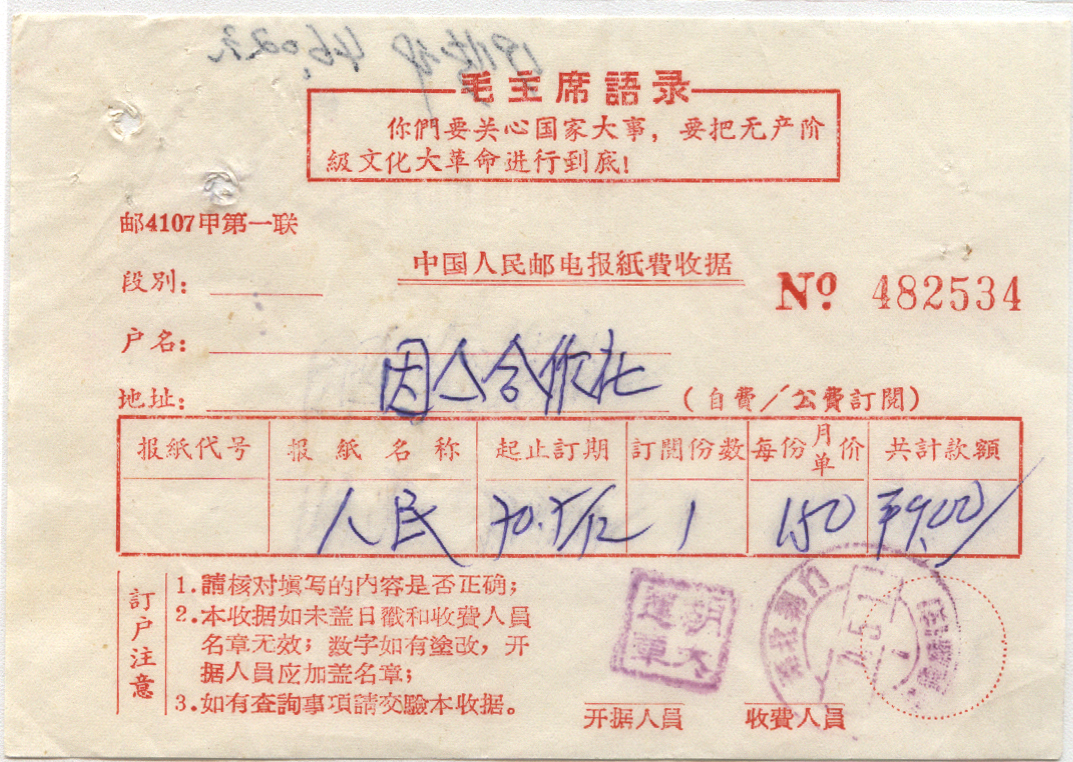 毛主席語录
你們要关心国家大事，要把无产阶
級文化大革命进行到底！
邮4107甲第一联
中国人民邮电报紙費收据
段別：
No 482534
户名：
地址：
合作社
（自費／公費訂閱）
报紙代号 报紙名称 起止訂期 訂閱份数 每份月单价 共計款額
人民 70.7/12 1 150 9.00
訂户注意
1.請核对填写的内容是否正确；
2.本收据如未盖日戳和收費人員
名章无效；数字如有塗改，开
据人員应加盖名章；
3.如有查詢事項請交驗本收据。
开据人員 收費人員